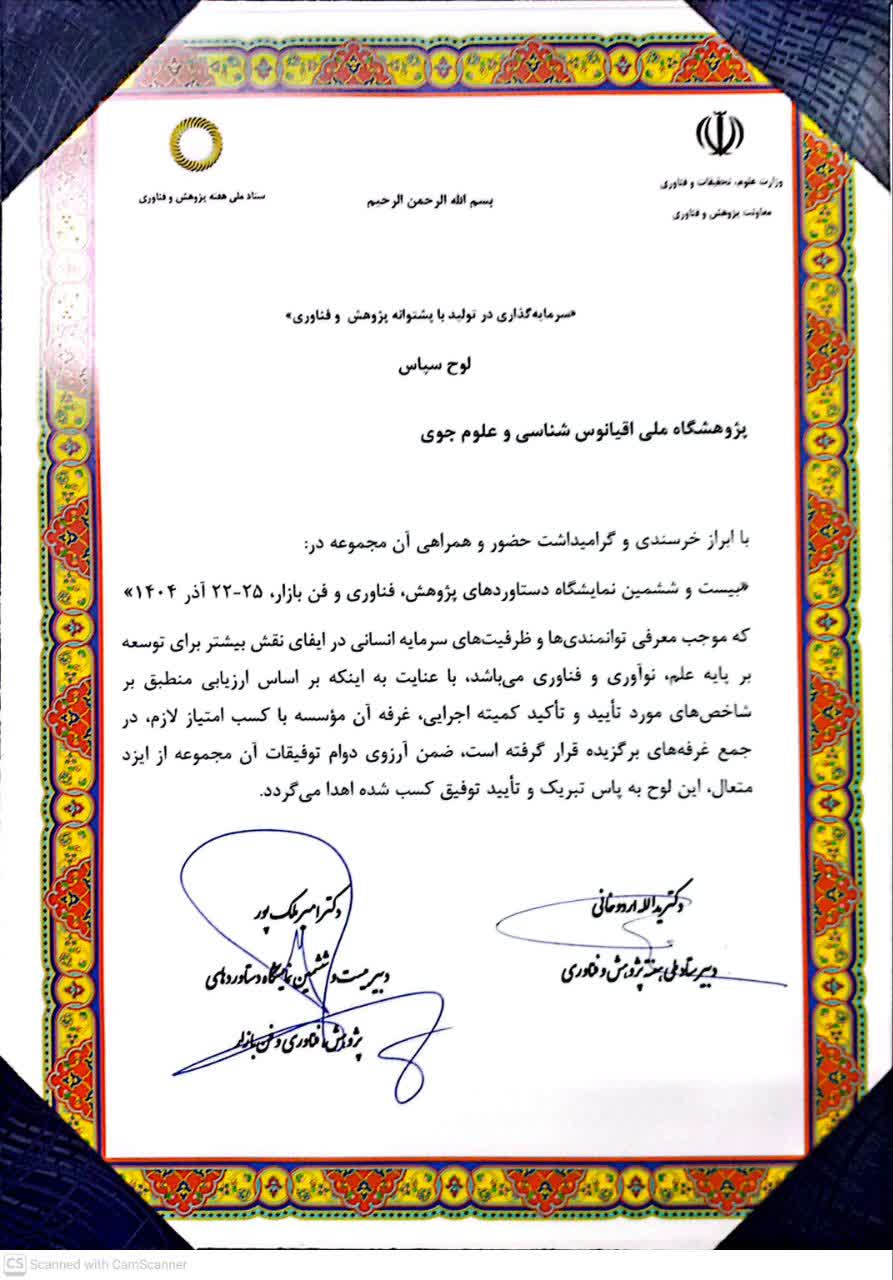 وزارت علوم، تحقیقات و فناوری
معاونت پژوهش و فناوری
ستاد ملی هفته پژوهش و فناوری
بسم الله الرحمن الرحیم
«سرمایه‌گذاری در تولید با پشتوانه پژوهش و فناوری»
لوح سپاس
پژوهشگاه ملی اقیانوس شناسی و علوم جوی
با ابراز خرسندی و گرامیداشت حضور و همراهی آن مجموعه در:
«بیست و ششمین نمایشگاه دستاوردهای پژوهش، فناوری و فن بازار، ۲۵-۲۲ آذر ۱۴۰۴»
که موجب معرفی توانمندی‌ها و ظرفیت‌های سرمایه انسانی در ایفای نقش بیشتر برای توسعه
بر پایه علم، نوآوری و فناوری می‌باشد، با عنایت به اینکه بر اساس ارزیابی منطبق بر
شاخص‌های مورد تأیید و تأکید کمیته اجرایی، غرفه آن مؤسسه با کسب امتیاز لازم، در
جمع غرفه‌های برگزیده قرار گرفته است، ضمن آرزوی دوام توفیقات آن مجموعه از ایزد
متعال، این لوح به پاس تبریک و تأیید توفیق کسب شده اهدا می‌گردد.
دکتر یدالله اردوخانی
دبیر ستاد ملی هفته پژوهش و فناوری
دکتر امیر ملک پور
دبیر بیست و ششمین نمایشگاه دستاوردهای
پژوهش، فناوری و فن بازار
CS Scanned with CamScanner